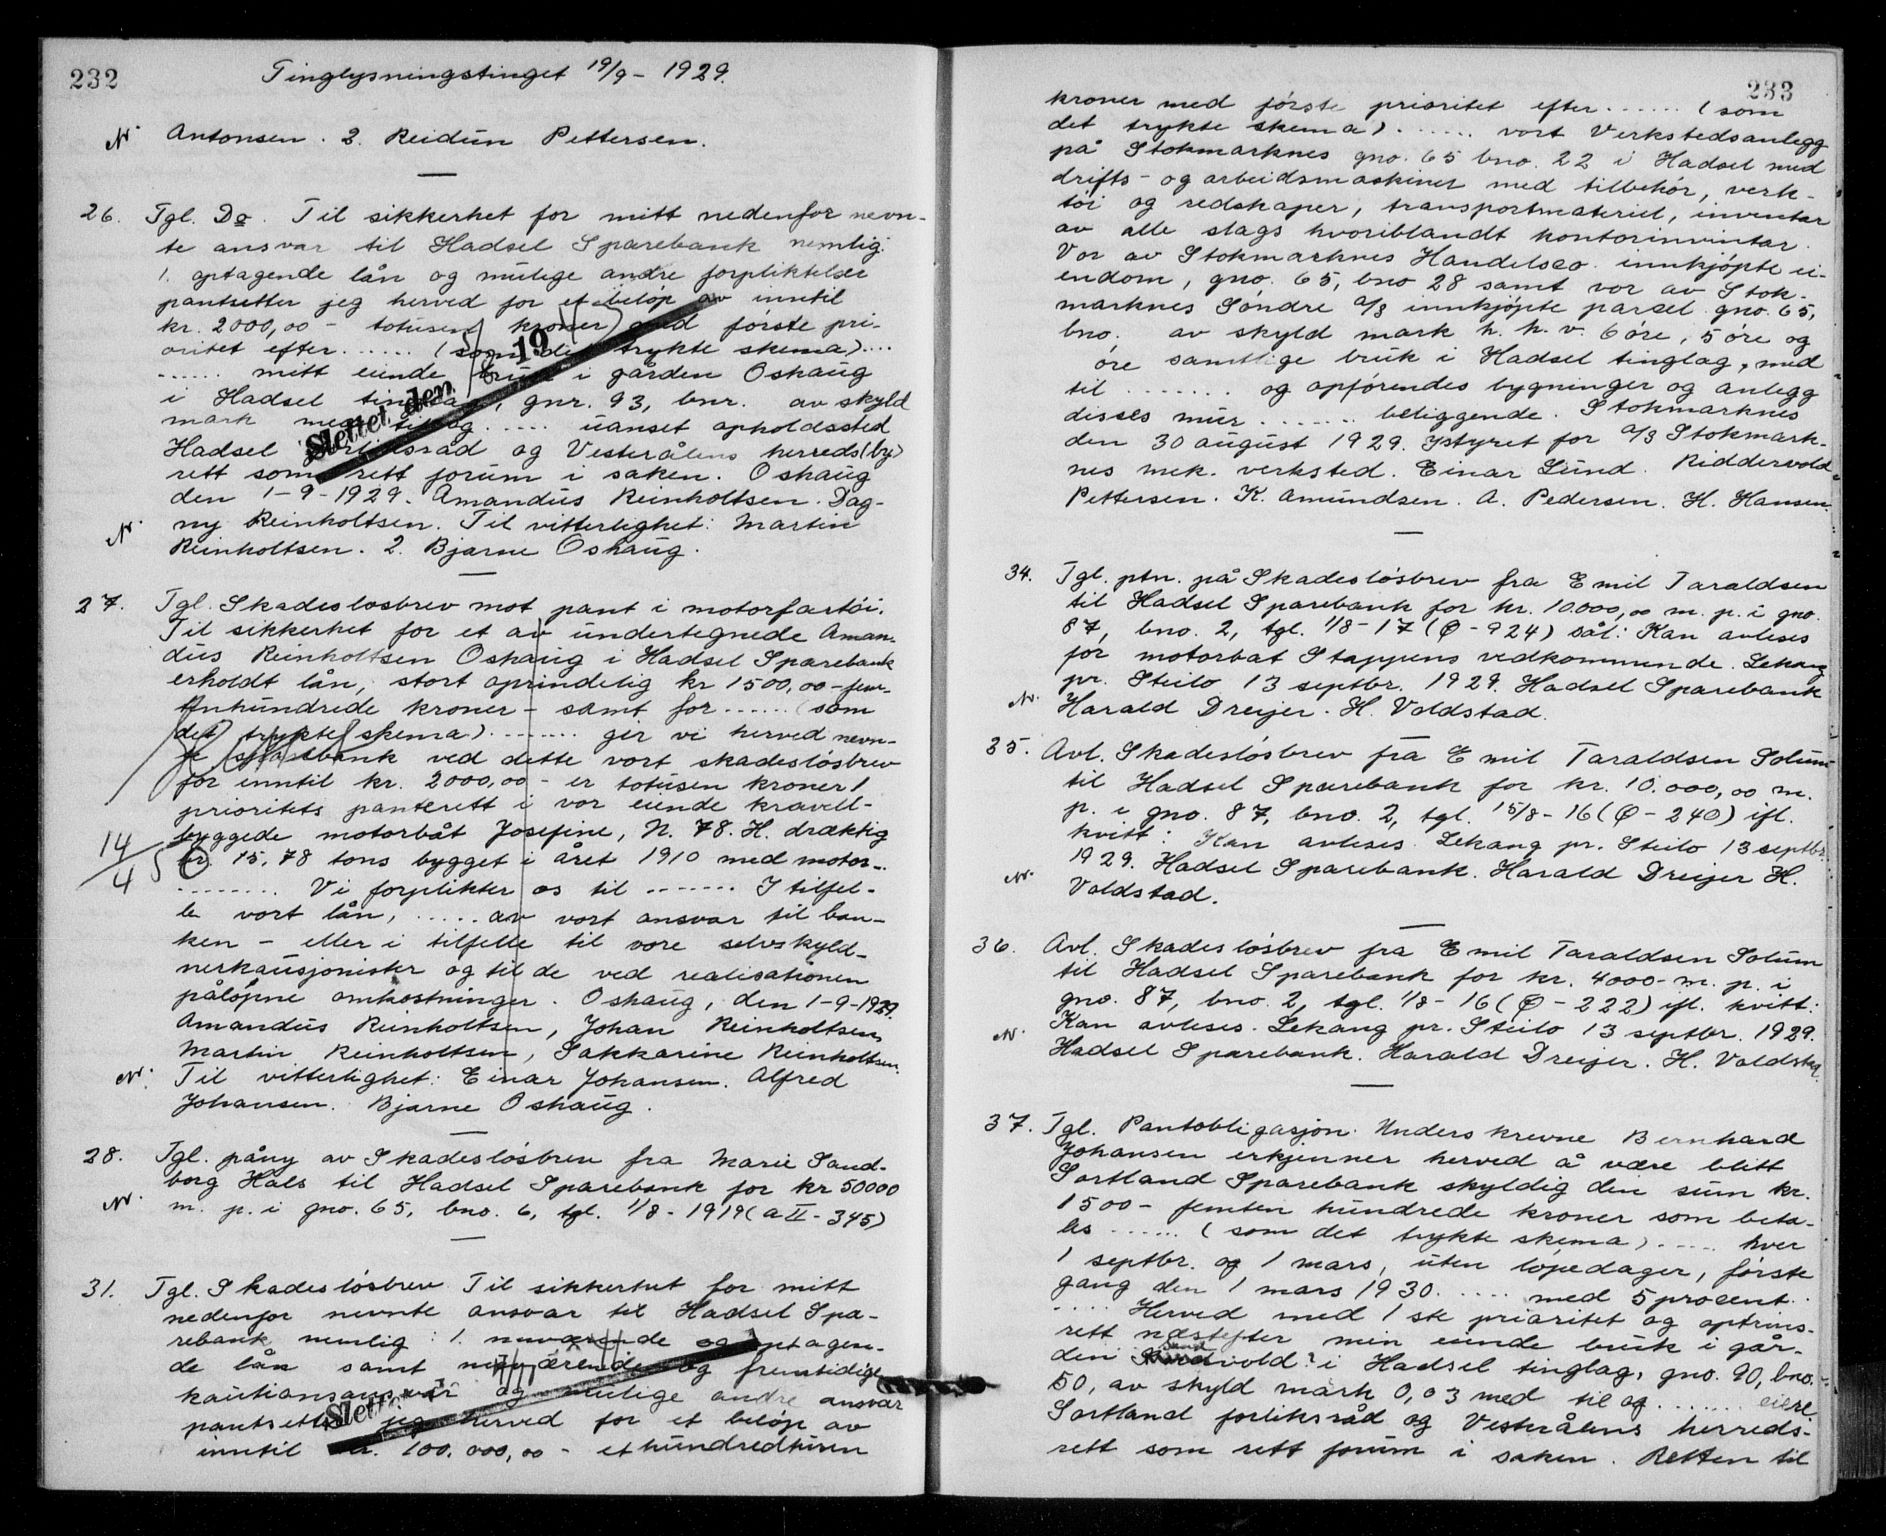 232
Tinglysningstinget 19/9 - 1929.
N Antonsen. 2. Reidun Pettersen.
26. Tgl. Do. Til sikkerhet for mitt nedenfor nevn-
te ansvar til Hadsel Sparebank nemlig:
1. optagende lån og mulige andre forpliktelser
pantsetter jeg herved for et beløp av inntil
kr. 2000,00 - totusen kroner med første pri-
oritet efter ...... (som det trykte skema) ....
...... mitt eiende bruk i gården Oshaug
i Hadsel tinglag, gnr. 93, bnr. av skyld
mark med til og ..... uanset opholdssted
Hadsel forliksråd og Vesterålens herreds(by)
rett som rett forum i saken. Oshaug
den 1-9-1929. Amandus Reinholtsen. Dag-
N. ny Reinholtsen. Til vitterlighet: Martin
Reinholtsen. 2. Bjarne Oshaug.
Slettet den 19
27. Tgl. Skadesløsbrev mot pant i motorfartøi.
Til sikkerhet for et av undertegnede Aman-
dus Reinholtsen Oshaug i Hadsel Sparebank
erholdt lån, stort oprindelig kr 1500,00 - fem-
tenhundrede kroner - samt for ...... (som
det trykte skema) ........ gir vi herved nevn-
te sparebank ved dette vort skadesløsbrev
for inntil kr. 2000,00 - er totusen kroner 1
prioritets panterett i vor eiende kravell-
byggede motorbåt Josefine, N. 78. H. dræktig
br. 15,78 tons bygget i året 1910 med motor-
14/4 5
........ Vi forplikter os til ....... I tilfel-
le vort lån, ..... av vort ansvar til ban-
ken - eller i tilfelle til vore selvskyld-
nerkausjonister og til de ved realisationen
påløpne omkostninger. Oshaug, den 1-9-1929.
Amandus Reinholtsen, Johan Reinholtsen
Martin Reinholtsen, Sakkarine Reinholtsen.
N. Til vitterlighet: Einar Johansen. Alfred
Johansen. Bjarne Oshaug.
28. Tgl. påny av Skadesløsbrev fra Marie Sand-
borg Hals til Hadsel Sparebank for kr 50000
N. m. p. i gno. 65, bno. 6, tgl. 1/8 - 1919 (a II - 345)
31. Tgl. Skadesløsbrev. Til sikkerhet for mitt
nedenfor nevnte ansvar til Hadsel Spa-
rebank nemlig: 1. nuværende og optagen-
de lån samt nuværende og fremtidige
kautionsansvar og mulige andre ansvar
pantsetter jeg herved for et beløp av
inntil kr. 100.000,00 - ethundredtusen
Slettet
233
kroner med første prioritet efter ...... (som
det trykte skema) ...... vort Verkstedsanlegg
på Stokmarknes gno. 65 bno. 22 i Hadsel med
drifts- og arbeidsmaskiner med tilbehør, verk-
tøi og redskaper, transportmateriel, inventar
av alle slags hvoriblandt kontorinventar.
Vor av Stokmarknes Handelsco. innkjøpte ei-
endom, gno. 65, bno 28 samt vor av Stok-
marknes Søndre A/S innkjøpte parsel gno. 65,
bno. av skyld mark h. h. v. 6 øre, 5 øre og
øre samtlige bruk i Hadsel tinglag, med
til ...... og opførendes bygninger og anlegg
disses mur ....... beliggende. Stokmarknes
den 30 august 1929. I styret for A/S Stokmark-
nes mek. verksted. Einar Lund. Riddervold
Pettersen. K. Amundsen. A. Pedersen. H. Hansen.
34. Tgl. ptn. på Skadesløsbrev fra Emil Taraldsen
til Hadsel Sparebank for kr. 10.000,00 m. p. i gno.
87, bno. 2, tgl. 1/8 - 17 (Q - 924) sål: Kan avleses
for motorbåt Stappens vedkommende. Lekang
pr. Steilo 13 septbr. 1929. Hadsel Sparebank
N. Harald Dreyer. H. Voldstad.
35. Avl. Skadesløsbrev fra Emil Taraldsen Solum
til Hadsel Sparebank for kr. 10.000,00 m.
p. i gno. 87, bno. 2, tgl. 15/8 - 16 (Q - 240) ifl.
kvitt: Kan avleses. Lekang pr. Steilo 13 septbr.
1929. Hadsel Sparebank. Harald Dreyer H.
N. Voldstad.
36. Avl. Skadesløsbrev fra Emil Taraldsen Solum
til Hadsel Sparebank for kr. 4000 - m. p. i
gno. 87, bno. 2, tgl. 1/8 - 16 (Q - 222) ifl. kvitt:
N Kan avleses. Lekang pr. Steilo 13 septbr. 1929.
Hadsel Sparebank. Harald Dreyer. H. Voldstad.
37. Tgl. Pantobligasjon. Underskrevne Bernhard
Johansen erkjenner herved å være blitt
Sortland Sparebank skyldig den sum kr.
1500 - femten hundrede kroner som beta-
les ...... (som det trykte skema) ..... hver
1 septbr. og 1 mars, uten løpedager, første
gang den 1 mars 1930. .... med 5 procent ..
.... Herved med 1ste prioritet og optrins-
rett næstefter min eiende bruk i går-
den Sandvold? i Hadsel tinglag, gno. 90, bno.
50, av skyld mark 0,03 med til og ....... eiere
Sortland forliksråd og Vesterålens herreds-
rett som rett forum i saken. Retten til